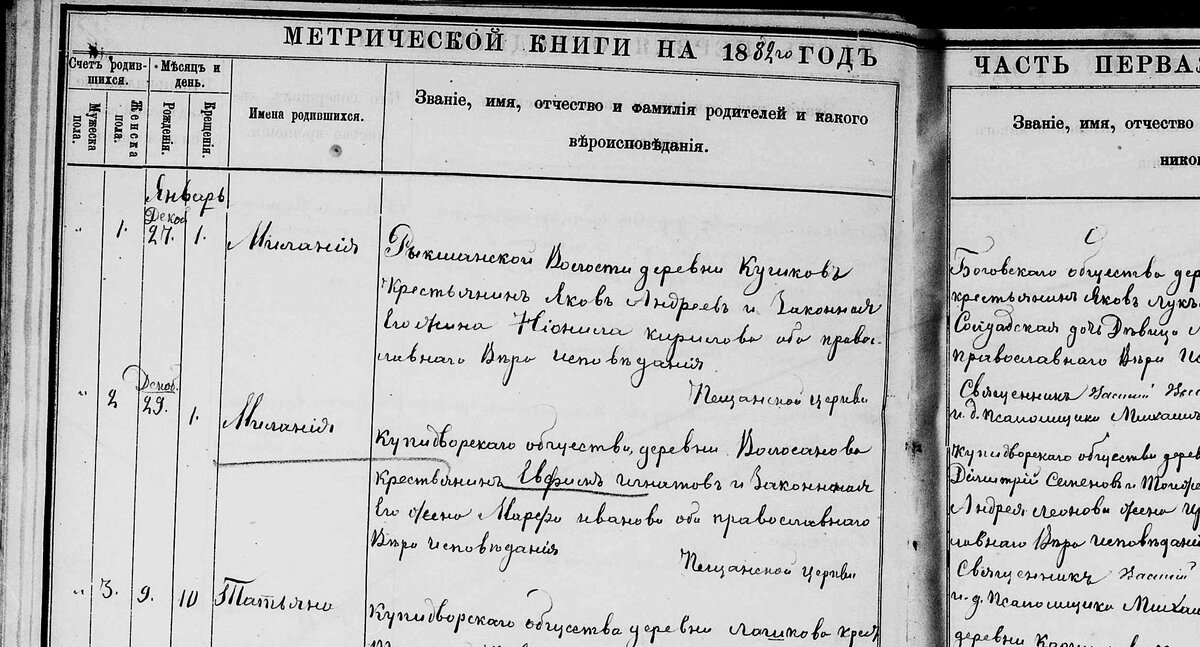 МЕТРИЧЕСКОЙ КНИГИ НА 1882го ГОДЪ
Счетъ родив-
шихся.
Мѣсяцъ и
день.
Мужеска
пола.
Женска
пола.
Рожденія.
Крещенія.
Имена родившихся.
Званіе, имя, отчество и фамилія родителей и какого
вѣроисповѣданія.
Январь
1. Декаб 27. 1. Миланія
волости деревни Кучиковъ
Крестьянинъ Яковъ Андреевъ и Законная
Его жина Нионила кирилова оба право-
славнаго Вѣро исповѣданія
Пещанской церкви
2 Декаб. 29. 1. Миланія
Купидворскаго общества деревни Волосанова
Крестьянинъ Евфимъ игнатовъ и Законная
Его жена Марфа иванова оба православнаго
Вѣро исповѣданія
Пещанской церкви
3. 9. 10 Татьяна
Купидворскаго общества деревни
ЧАСТЬ ПЕРВАЯ
Званіе, имя, отчество
Боговскаго общества дер
крестьянинъ Яковъ Лук
Солдадская дочь Дѣвица
православнаго Вѣро Ис
Священникъ
и.д. Псаломщика Михаил
Купидворскаго общества дерев
Димитрій Семеновъ и
Андрея Леонова жена
славнаго Вѣро исповѣданій
Священникъ
и.д. Псаломщика Михаи
деревни